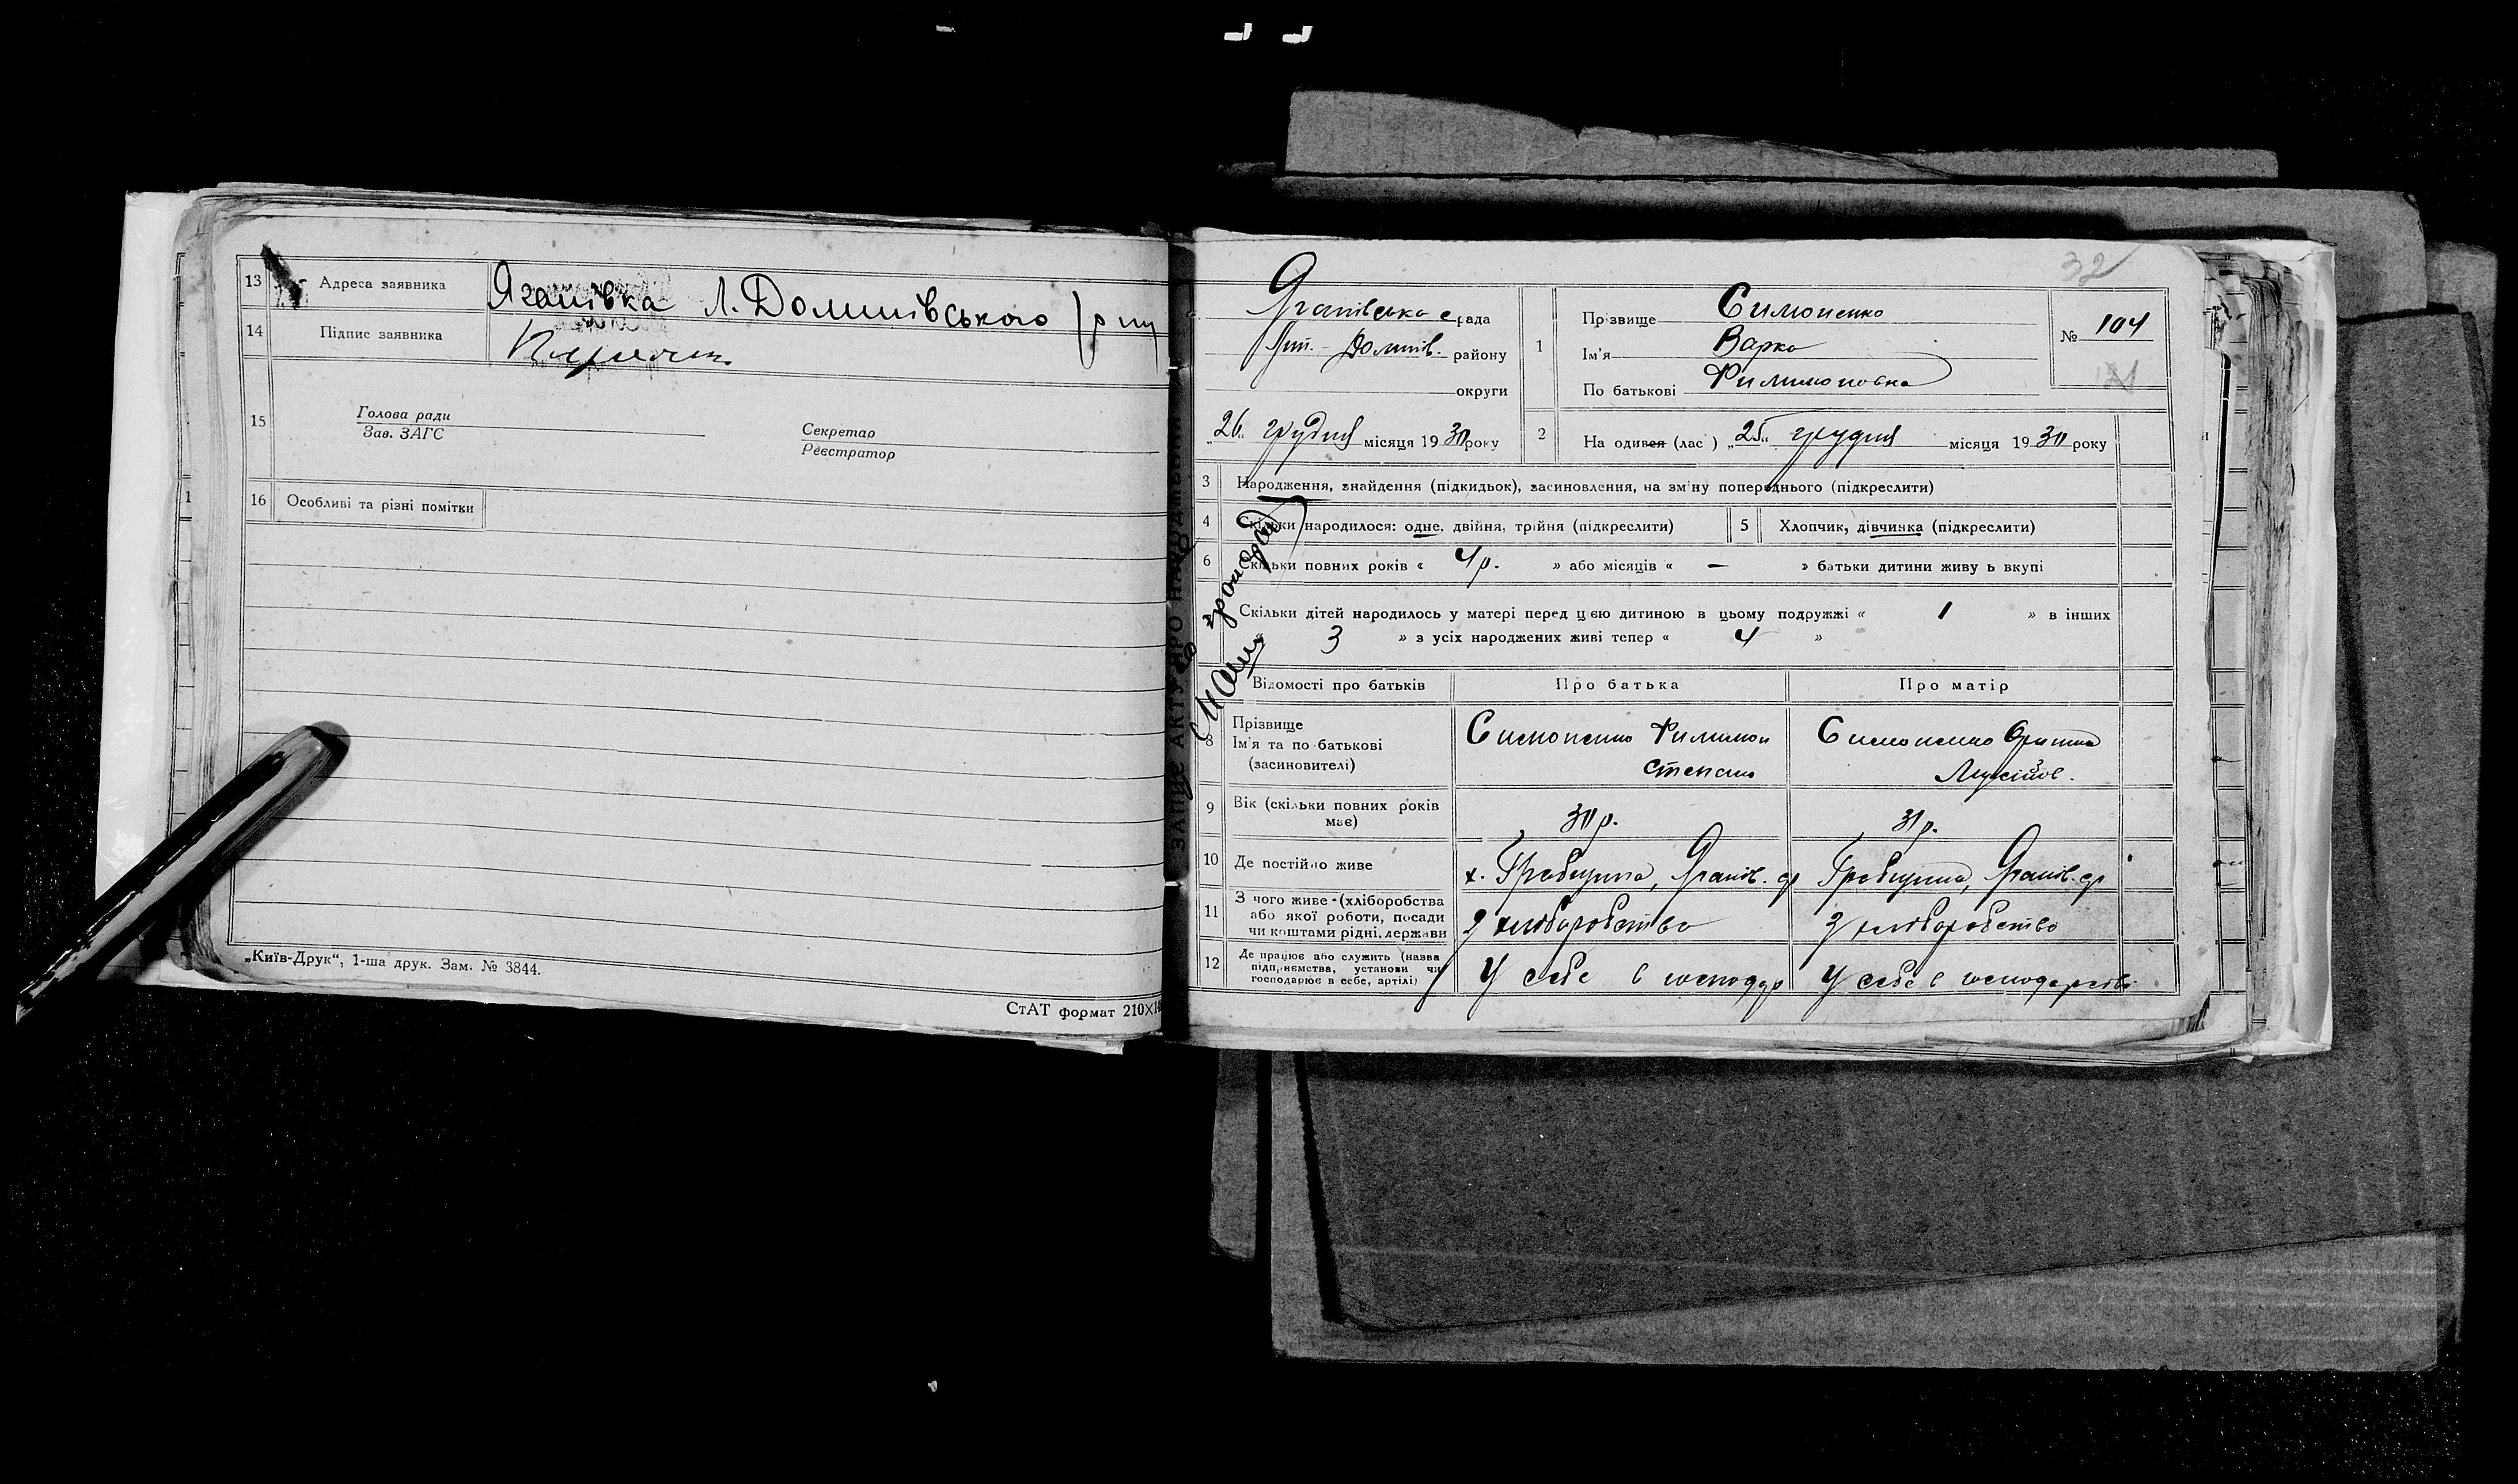 13 Адреса заявника Яганівка Л. Долинівського р ну
14 Підпис заявника
15 Голова ради
Зав. ЗАГС
Секретар
Реєстратор
16 Особливі та різні помітки
„Київ-Друк“, 1-ша друк. Зам. № 3844.
СтАТ формат 210×14
32
Яганівська с рада
Лип. - Долинів. району
округи
26 грудня місяця 1930 року
1 Прізвище Симоненко
Ім'я Варка
По батькові Филимоновна
№ 104
2 На один (лас ) „25“ грудня місяця 1930 року
3 Народження, знайдення (підкидьок), засиновлення, на зміну попереднього (підкреслити)
4 Скільки народилося: одне, двійня, трійня (підкреслити)
5 Хлопчик, дівчинка (підкреслити)
6 Скільки повних років « 4р. » або місяців « — » батьки дитини живу ь вкупі
Скільки дітей народилось у матері перед цією дитиною в цьому подружжі « 1 » в інших
3 » з усіх народжених живі тепер « 4 »
Відомості про батьків Про батька Про матір
8 Прізвище
Ім'я та по-батькові
(засиновителі)
Симоненко Филимон
Степан
Симоненко
9 Вік (скільки повних років
має)
30 р. 31 р.
10 Де постійно живе х. Гребщина, Яганів. ср Гребщина, Яганів. ср
11 З чого живе (хліборобства
або якої роботи, посади
чи коштами рідні, держави
З хліборобства З хліборобства
12 Де працює або служить (назва
підприємства, установи чи
господарює в себе, артілі)
У себе в господар У себе в господарстві